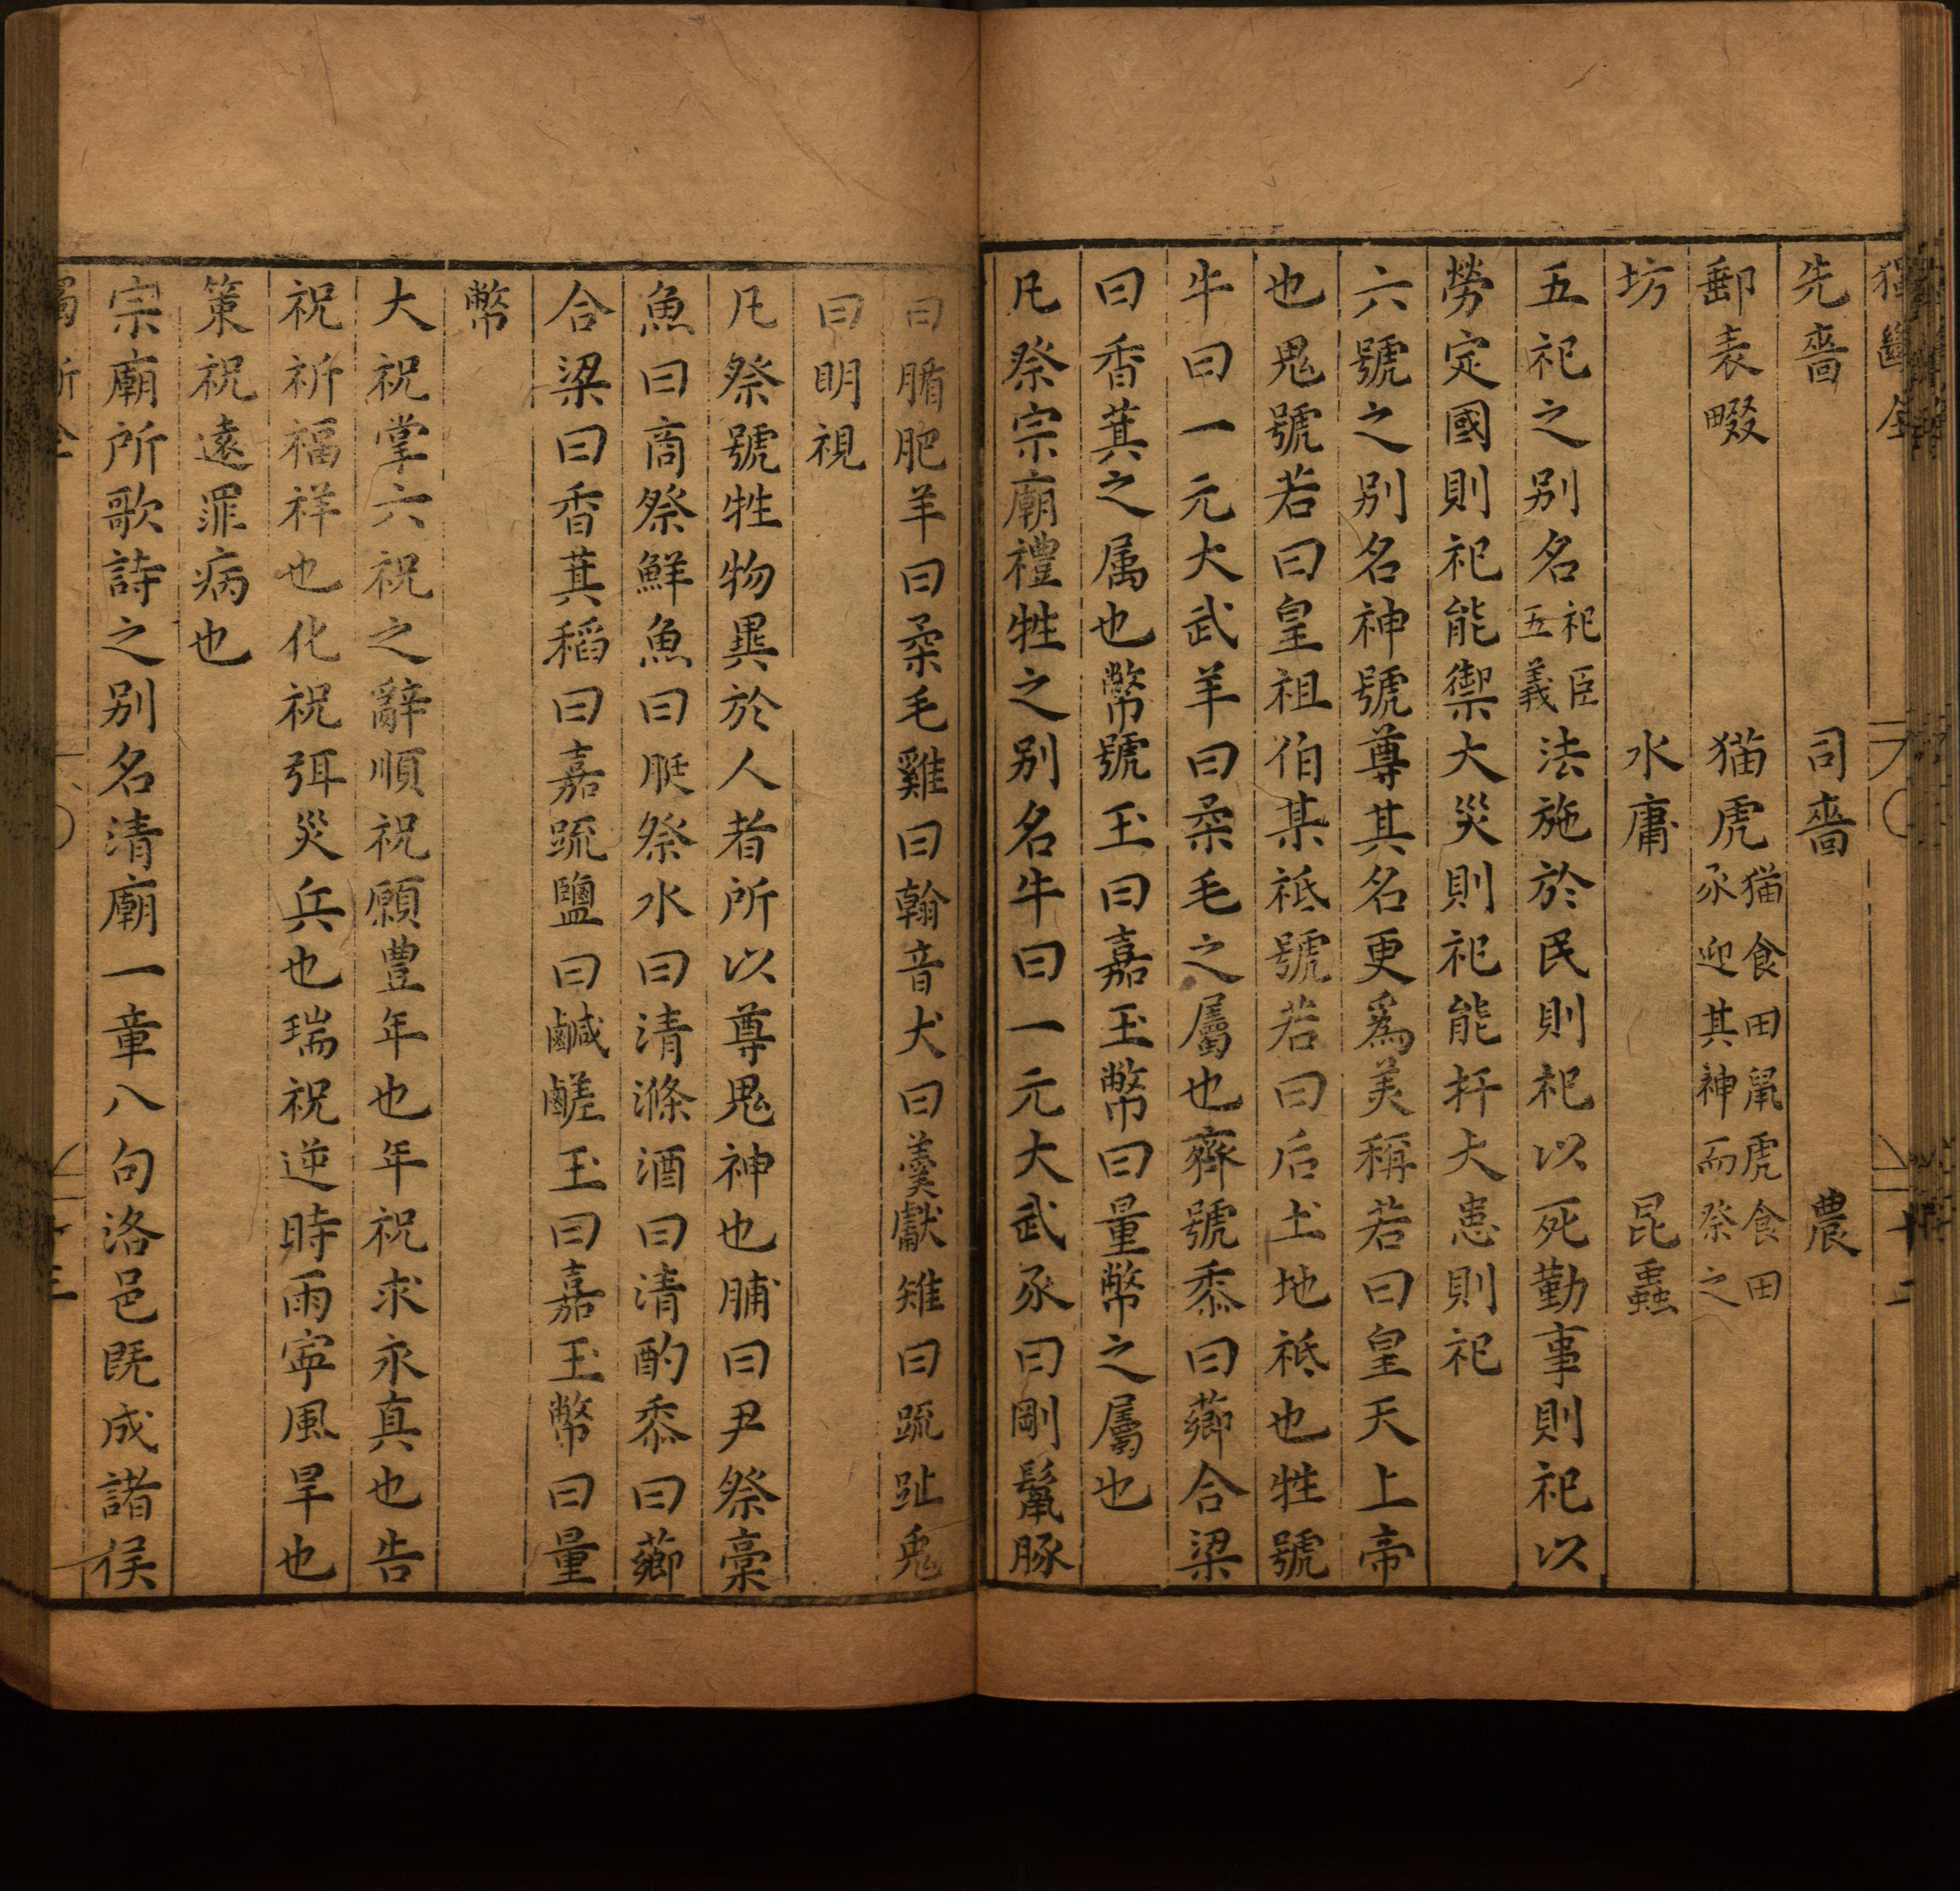 先嗇　司嗇　農
郵表畷　猫虎猫食田鼠虎食田豕迎其神而祭之
坊　水庸　昆蟲
五祀之别名祀臣五義法施於民則祀以死勤事則祀以
勞定國則祀能禦大災則祀能扞大患則祀
六號之别名神號尊其名更爲美稱若曰皇天上帝
也鬼號若曰皇祖伯某祗號若曰后土地祗也牲號
牛曰一元大武羊曰柔毛之屬也齊號黍曰薌合梁
曰香萁之属也幣號玉曰嘉玉幣曰量幣之屬也
凡祭宗廟禮牲之别名牛曰一元大武豕曰剛鬣豚
曰腯肥羊曰柔毛雞曰翰音犬曰羹獻雉曰疏趾兎
曰明視
凡祭號牲物異於人者所以尊鬼神也脯曰尹祭槀
魚曰商祭鮮魚曰脡祭水曰清滌酒曰清酌黍曰薌
合梁曰香萁稻曰嘉疏鹽曰鹹鹺玉曰嘉玉幣曰量
幣
大祝掌六祝之辭順祝願豊年也年祝求永真也告
祝祈福祥也化祝弭災兵也瑞祝逆時雨寧風旱也
策祝遠罪病也
宗廟所歌詩之别名清廟一章八句洛邑既成諸侯